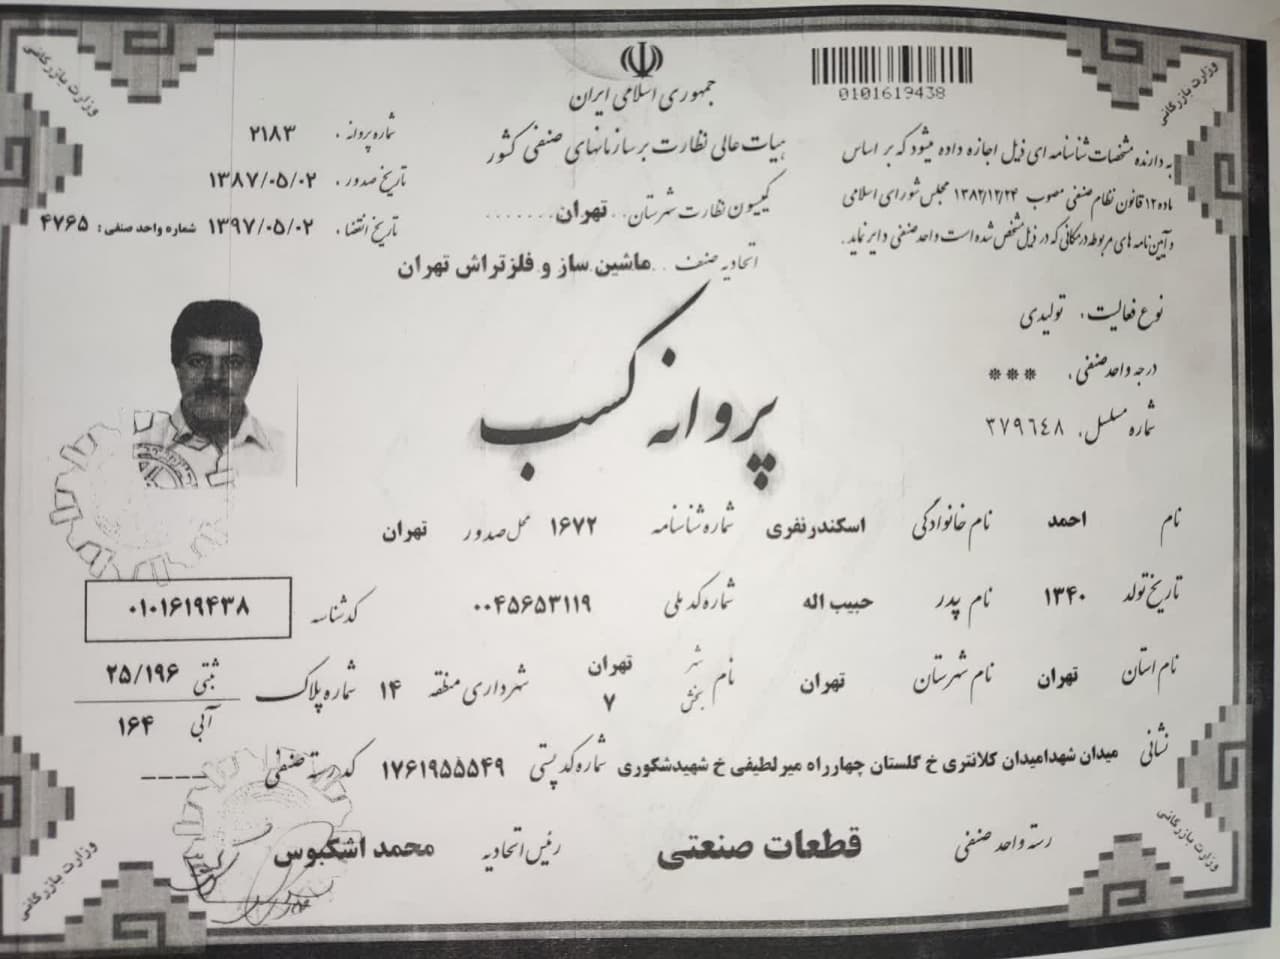 جمهوری اسلامی ایران
0101619438
هیات عالی نظارت بر سازمانهای صنفی کشور
کمیسیون نظارت شهرستان . . تهران . . . . . . .
اتحادیه صنف . . ماشین ساز و فلزتراش تهران
به دارنده مشخصات شناسنامه ای ذیل اجازه داده میشود که بر اساس
ماده ۱۲ قانون نظام صنفی مصوب ۱۳۸۲/۱۲/۲۴ مجلس شورای اسلامی
و آیین نامه های مربوطه در مکانی که در ذیل مشخص شده است واحد صنفی دایر نماید.
شماره پروانه : ۲۱۸۳
تاریخ صدور : ۱۳۸۷/۰۵/۰۲
تاریخ انقضاء : ۱۳۹۷/۰۵/۰۲ شماره واحد صنفی : ۴۷۶۵
نوع فعالیت : تولیدی
درجه واحد صنفی : ***
شماره مسلسل : ۳۷۹٦٤٨
پروانه کسب
نام احمد نام خانوادگی اسکندرنفری شماره شناسنامه ۱۶۷۲ محل صدور تهران
تاریخ تولد ۱۳۴۰ نام پدر حبیب اله شماره کد ملی ۰۰۴۵۶۵۳۱۱۹ کد شناسه ۰۱۰۱۶۱۹۴۳۸
نام استان تهران نام شهرستان تهران نام شهر تهران بخش ۷ شهرداری منطقه ۱۴ شماره پلاک ثبتی ۲۵/۱۹۶ آبی ۱۶۴
نشانی میدان شهدامیدان کلانتری خ گلستان چهارراه میرلطیفی خ شهیدشکوری شماره کد پستی ۱۷۶۱۹۵۵۵۴۹ کد رسته صنفی -----
رسته واحد صنفی قطعات صنعتی رئیس اتحادیه محمد اشکبوس
وزارت بازرگانی
وزارت بازرگانی
وزارت بازرگانی
وزارت بازرگانی